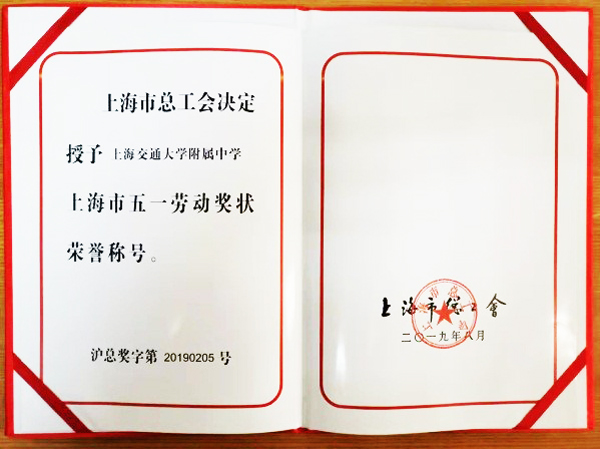 上海市总工会决定
授予 上海交通大学附属中学
上海市五一劳动奖状
荣誉称号。
沪总奖字第 20190205 号
上海市总工会
二〇一九年八月